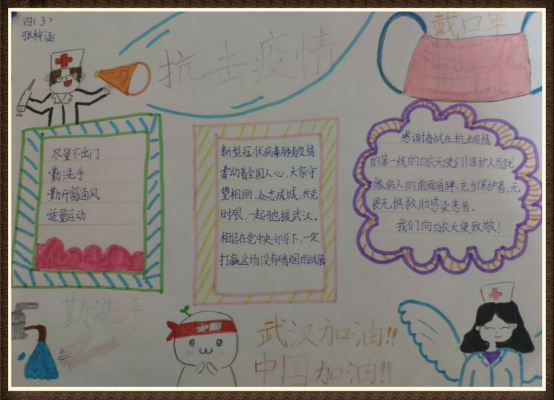 四(3)
张梓涵
抗击疫情
戴口罩
尽量不出门
勤洗手
勤开窗通风
适量运动
新型冠状病毒肺炎疫情
牵动着全国人心,大家守
望相助、众志成城、共克
时艰,一起驰援武汉。
相信在党中央领导下,一定
打赢这场没有硝烟的战争
感谢奋战在抗击疫情
的第一线的白衣天使们!医护人员就
像病人的前面盾牌,充当保护者,无
畏无惧救助感染患者。
我们向白衣天使致敬!
勤洗手
武汉加油!!
中国加油!!